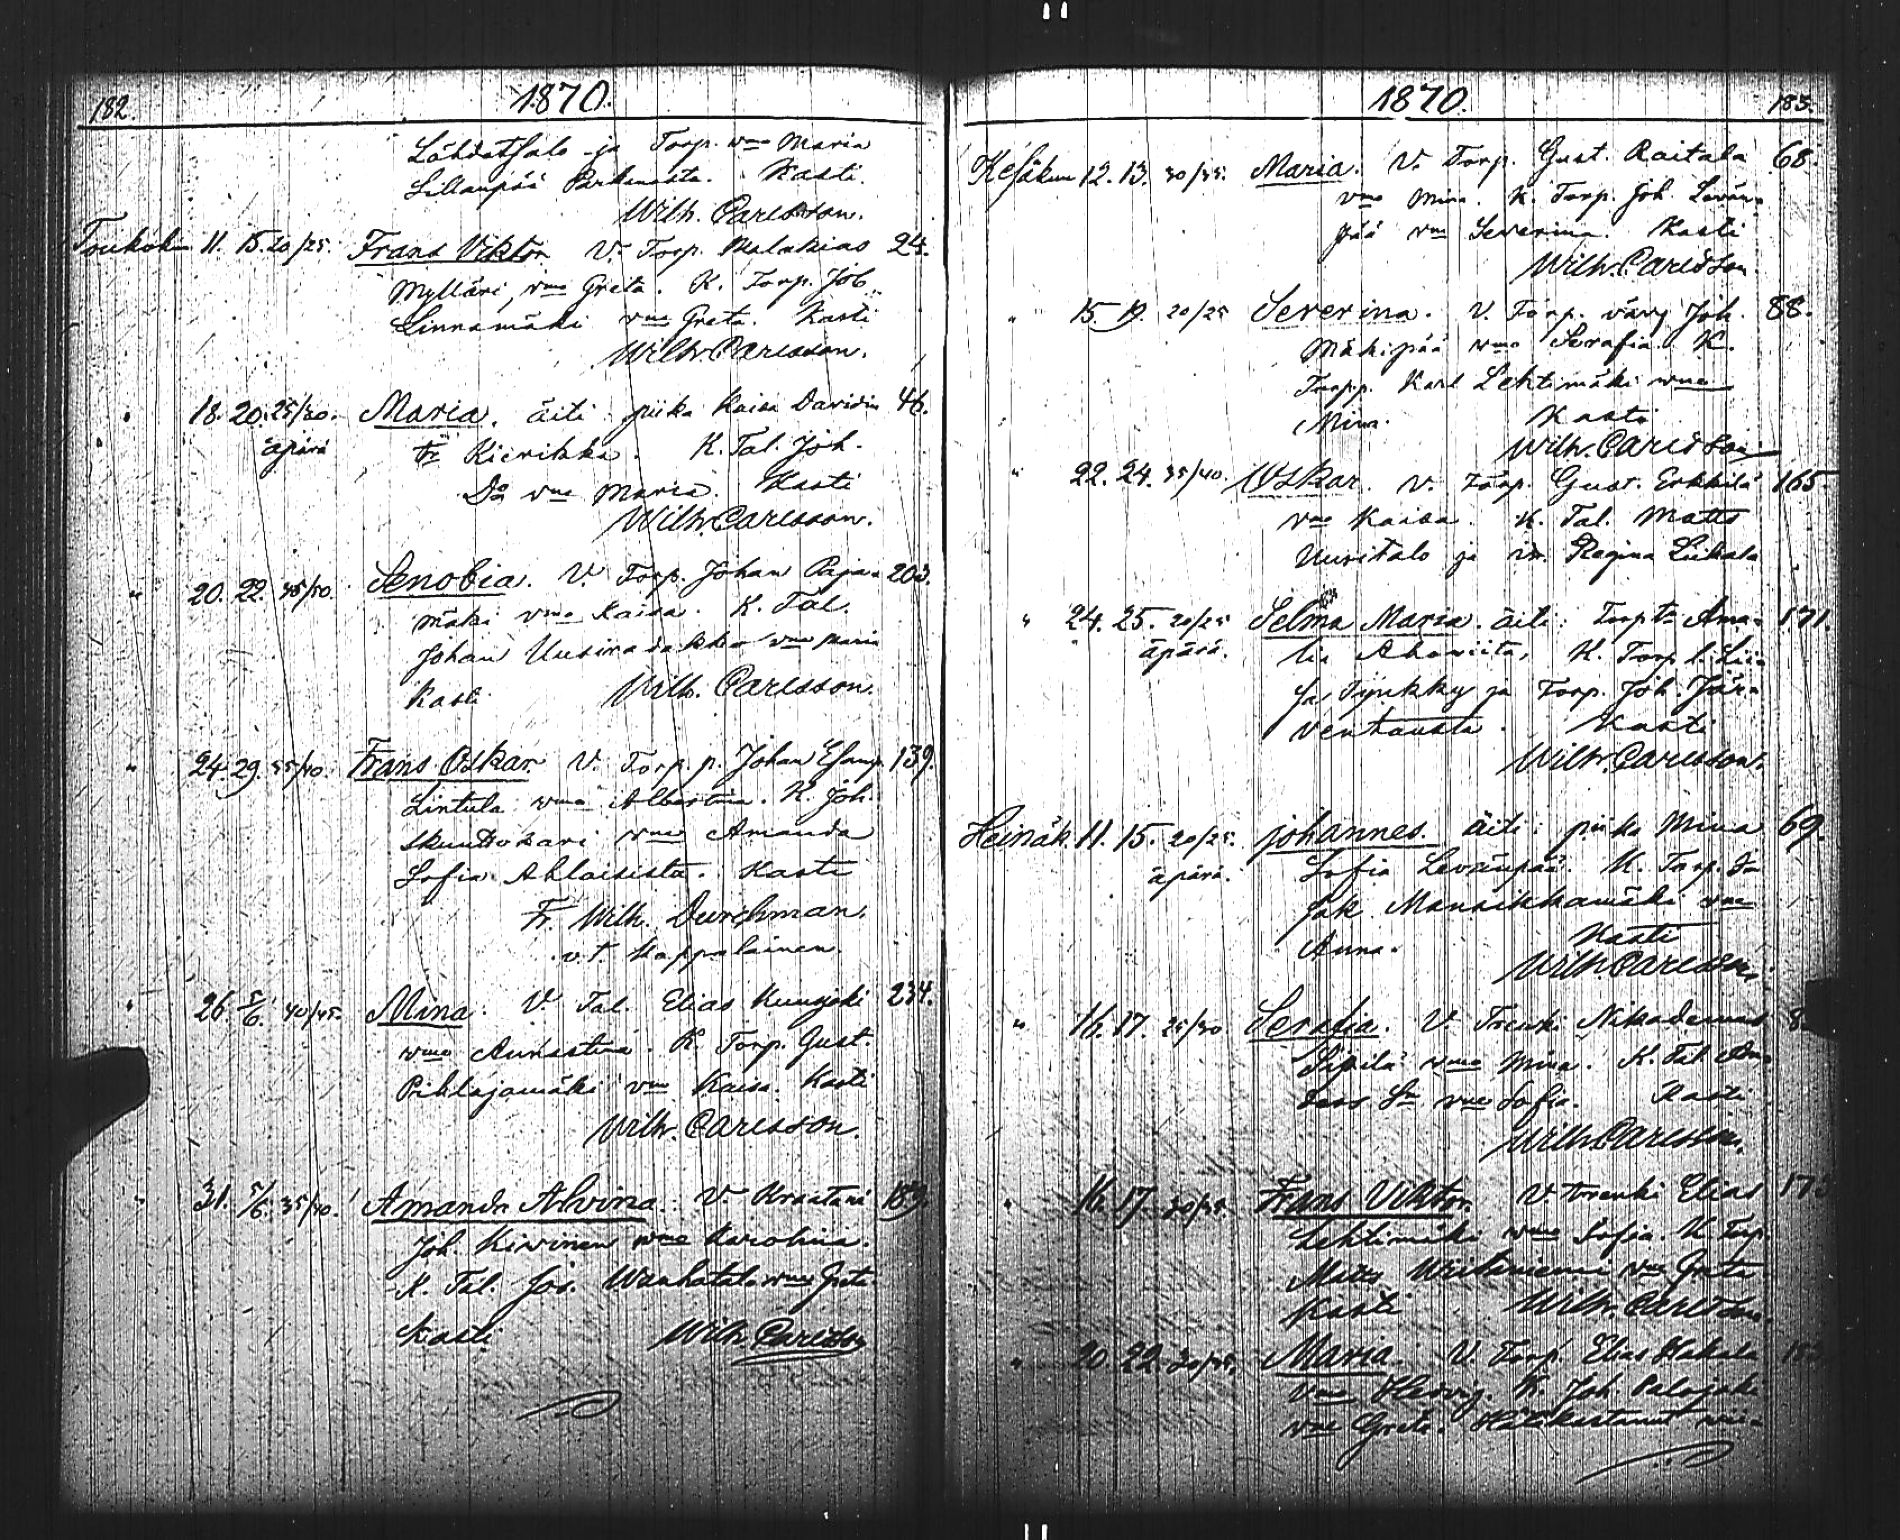 182. 1870.
Lähdetsalo ja Torp. vmo Maria
Lillanpää Parkanosta. Kasti
Wilh. Carlsson.
Toukok. 11. 15. 20/25. Frans Viktor V. Torp. Malakias 24.
Mylläri, vmo Greta. K. Torp. Joh.
Linnamäki vmo Greta. Kasti
Wilh. Carlsson.
" 18. 20. 25/30. Maria. äiti piika Kaisa Davidin 46.
äpärä tr Kierikka. K. Tal. Joh.
Do vmo Maria. Kasti
Wilh. Carlsson.
" 20. 22. 45/50. Senobia. V. Torp. Johan Paja- 203.
mäki vmo Kaisa. K. Tal.
Johan Uusiradakko vmo Maria
Kasti Wilh. Carlsson.
" 24. 29. 35/40. Frans Oskar V. Torp. p. Johan Esamp. 139.
Lintula vmo Albertina. K. Joh.
vmo Amanda
Sofia Ahlaisista. Kasti
Fr. Wilh. Durchman.
v.t. Kappalainen.
" 26. 5/6. 40/45. Mina. V. Tal. Elias Kuusjoki 234.
vmo K. Torp. Gust.
Pihlajamäki vmo Kaisa. Kasti
Wilh. Carlsson.
" 31. 5/6. 35/40. Amanda Alvina. V. Kraatari 189.
Joh. Kivinen vmo Karolina.
K. Tal. Jos. Wanhatalo vmo Greta
Kasti Wilh. Carlsson
1870. 183.
Kesäkuu 12. 13. 30/35. Maria. V. Torp. Gust. Raitala 68.
vmo Mina. K. Torp. Joh. Levän-
pää vmo Severina. Kasti
Wilh. Carlsson.
" 15. 19. 20/25 Severina. V. Torp. vävy Joh. 88.
Mäkipää vmo Serafia. K.
Torpp. Karl Lehtimäki vmo
Mina. Kasti
Wilh. Carlsson
" 22. 24. 35/40. Oskar. V. Torp. Gust. Erkkilä 165
vmo Kaisa. K. Tal. Matts
Uusitalo ja Regina Liikala
" 24. 25. 20/25 Selma Maria. äiti: Torp tr Ama- 171.
äpärä. lia K. Torp. l. Lii-
sa Tynkky ja Torp. Joh. Jär-
ventausta. Kasti
Wilh. Carlsson.
Heinäk. 11. 15. 20/25. Johannes. äiti: piika Mina 69.
äpärä. Sofia Levänpää. K. Torp.
Jak Mansikkamäki vmo
Anna. Kasti
Wilh. Carlsson.
" 16. 17. 25/30 Serafia. V Trenki Nikodemus 8
Sipilä vmo Mina. K. Tal
vmo Sofia. Kasti
Wilh. Carlsson.
" 16. 17. 30/35. Frans Viktor. V trenki Elias 17
Lehtimäki vmo Sofia. K. Torp.
Matts vmo Greta
Kasti Wilh. Carlsson.
" 20. 22. 30/35. Maria. V. Torp. Elias Hakala
vmo Hedvig. K. Joh. Palojoki
vmo Greta. Hätäkastanut